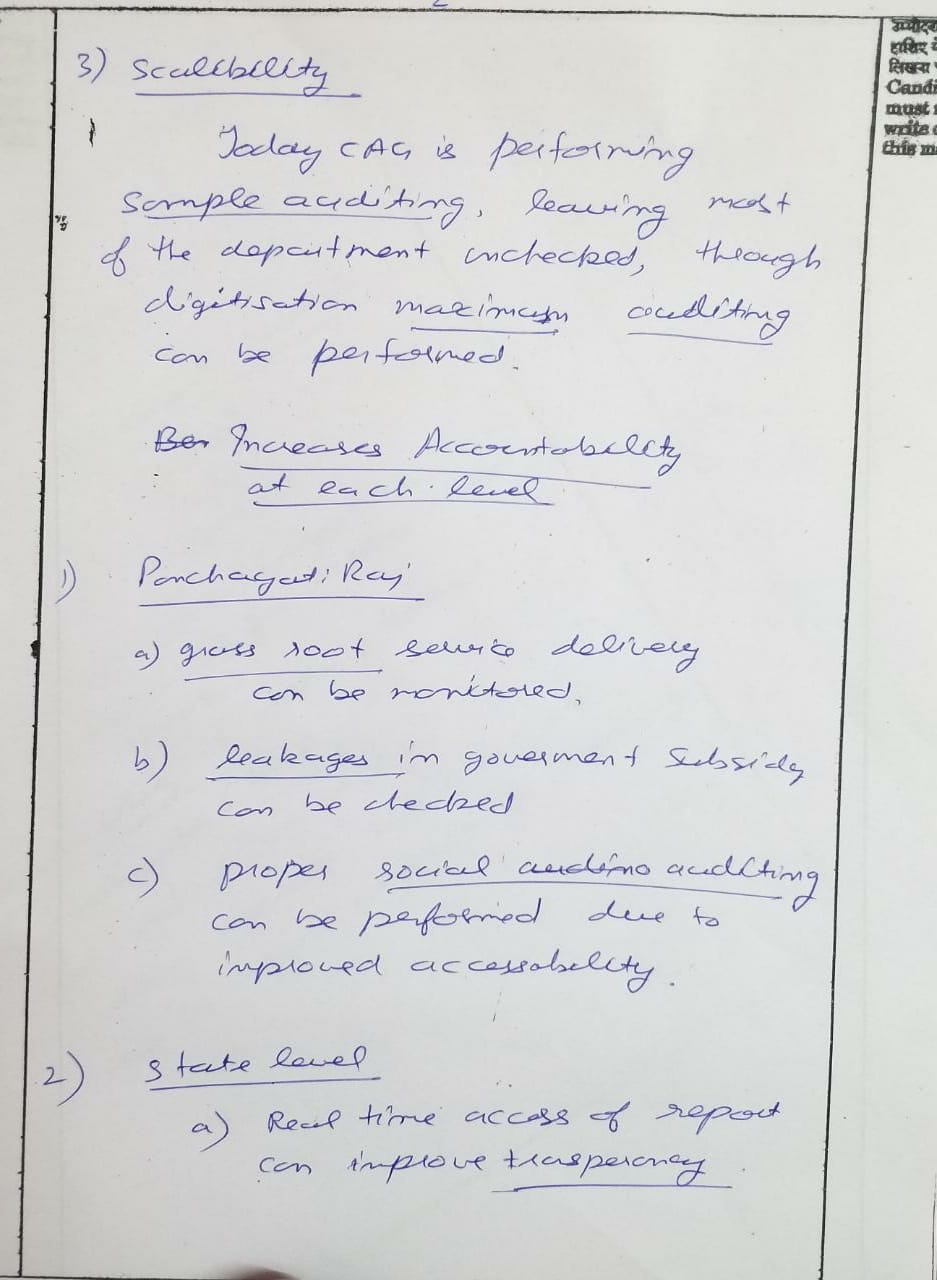 3) Scalibility
Today CAG is performing
sample auditing, leaving most
of the department unchecked, through
digitisation maximum auditing
can be performed.
Increases Accountability
at each level
1) Panchayati Raj
a) grass root service delivery
can be monitored.
b) leakages in goverment Subsidy
can be checked
c) proper social auditing
can be performed due to
improved accessability.
2) State level
a) Real time access of report
can improve transperancy
उम्मीदव
हाशिए
लिखना
Candi
must
write
this ma